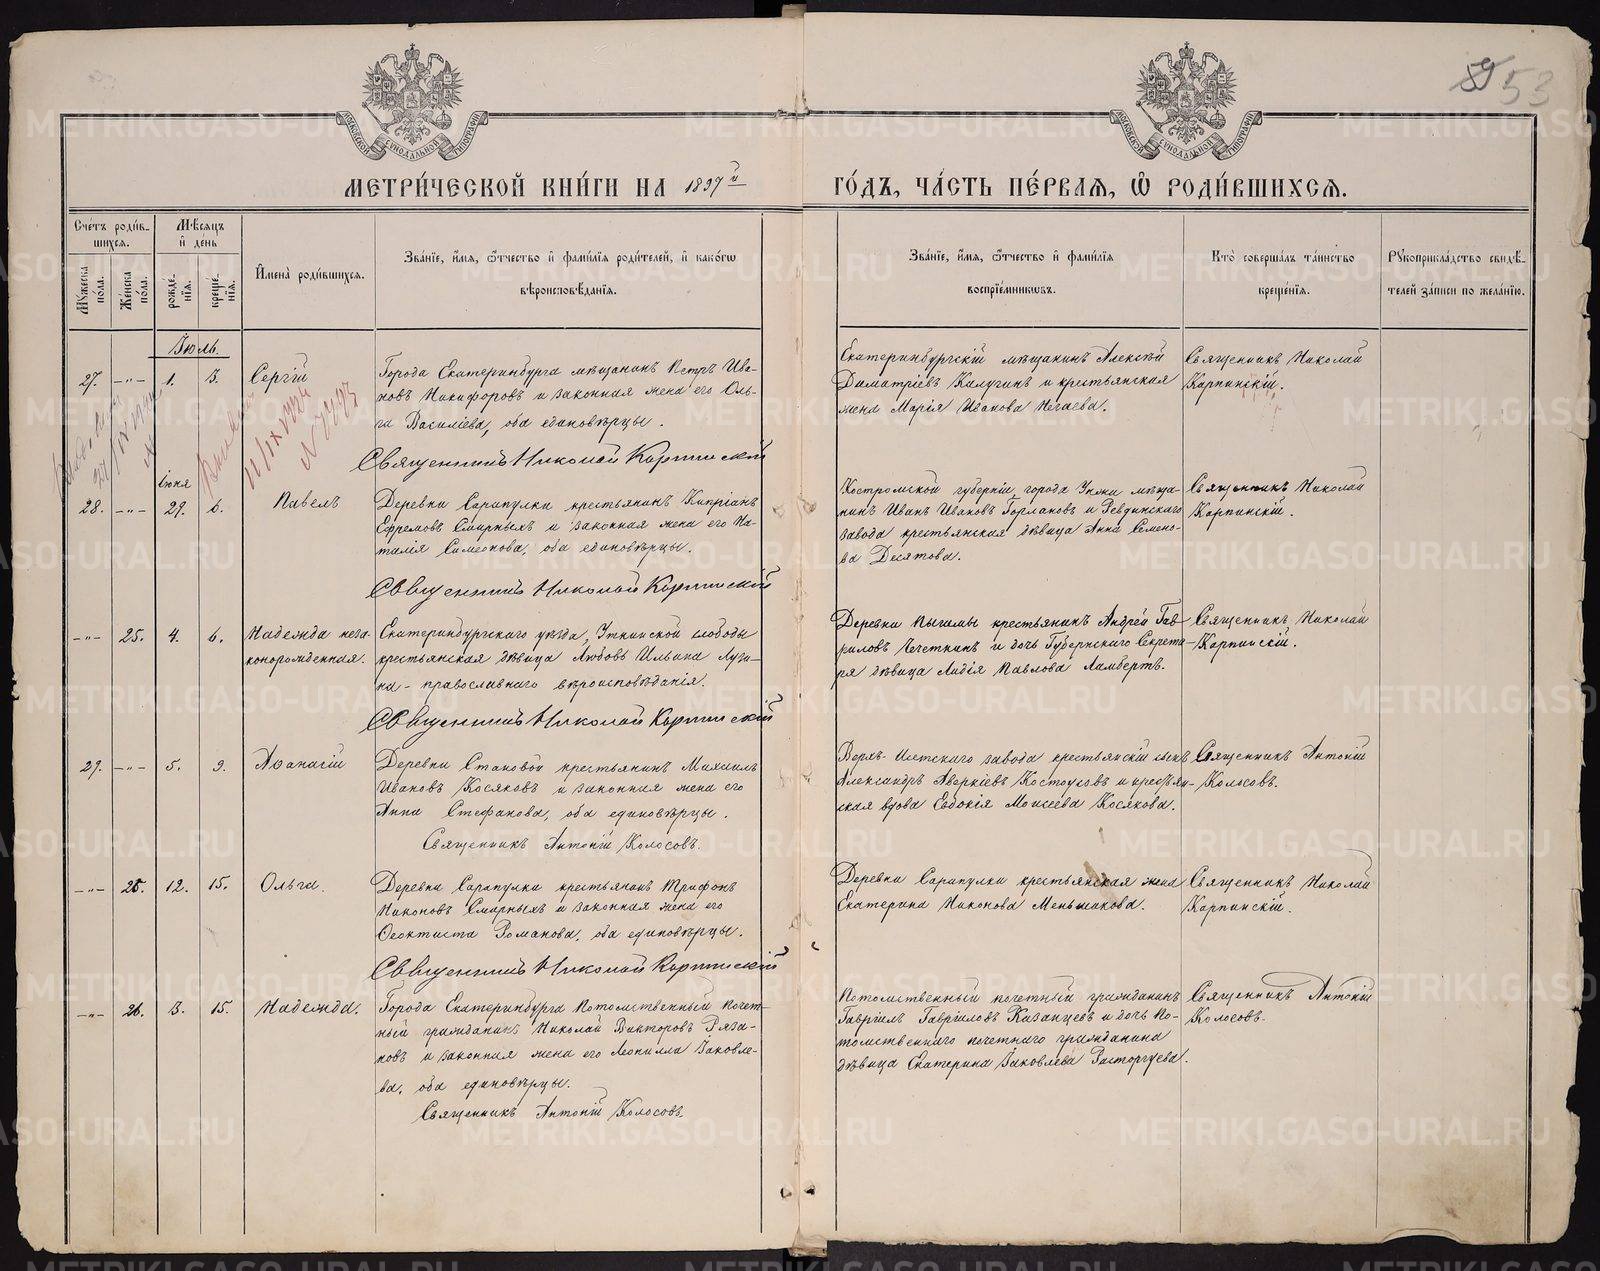 53
МОСКОВСКОЙ СѴНОДАЛЬНОЙ ТИПОГРАФІИ
МОСКОВСКОЙ СѴНОДАЛЬНОЙ ТИПОГРАФІИ
МЕТРИ́ЧЕСКОЙ КНИ́ГИ НА 1897й
ГО́ДЪ, ЧА́СТЬ ПЕ́РВАѦ, Ѡ҆ РОДИ́ВШИХСѦ.
Сче́тъ роди́в-
шихсѧ.
Мѣ́сяцъ
и҆ де́нь
Мꙋ́жеска
по́ла.
Же́нска
по́ла.
рожде́-
нїѧ.
креще́-
нїѧ.
И҆мена̀ роди́вшихсѧ.
Зва́нїе, и҆́мѧ, ѻ҆́тчество и҆ фами́лїѧ роди́телей, и҆ како́гѡ
вѣроисповѣ́данїѧ.
Зва́нїе, и҆́мѧ, ѻ҆́тчество и҆ фами́лїѧ
воспрїе́мникѡвъ.
Кто̀ соверша́лъ та́инство
креще́нїѧ.
Рꙋкоприкла́дство свидѣ́-
телей за́писи по жела́нїю.
Іюль.
27. —"— 1. 3. Сергій
Города Екатеринбурга мѣщанинъ Петръ Ива-
новъ Никифоровъ и законная жена его Оль-
га Василіева, оба единовѣрцы.
Священникъ Николай Карпинскій
Екатеринбургскій мѣщанинъ Алексѣй
Димитріевъ Калугинъ и крестьянская
жена Марія Иванова Нечаева.
Священникъ Николай
Карпинскій.
11/IX 1924
іюня
28. —"— 29. 6. Павелъ
Деревни Сарапулки крестьянинъ Кипріанъ
Ефремовъ Смирныхъ и законная жена его На-
талія Симеонова, оба единовѣрцы.
Священникъ Николай Карпинскій
Костромской губерніи, города Унжи мѣща-
нинъ Иванъ Ивановъ Горлановъ и Ревдинскаго
завода крестьянская дѣвица Анна Семено-
ва Десятова.
Священникъ Николай
Карпинскій.
—"— 25. 4. 6. Надежда неза-
коннорожденная.
Екатеринбургскаго уѣзда, Уткинской слободы
крестьянская дѣвица Любовь Ильина Луги-
на - православнаго вѣроисповѣданія.
Священникъ Николай Карпинскій
Деревни Пышмы крестьянинъ Андрей Гав-
риловъ Чечеткинъ и дочь Губернскаго Секрета-
ря дѣвица Лидія Павлова Ламбертъ.
Священникъ Николай
Карпинскій.
29. —"— 5. 9. Аѳанасій
Деревни Становой крестьянинъ Михаилъ
Ивановъ Косяковъ и законная жена его
Анна Стефанова, оба единовѣрцы.
Священникъ Антоній Колосовъ.
Верхъ-Исетскаго завода крестьянскій сынъ
Александръ Аверкіевъ Костоусовъ и крестьян-
ская вдова Евдокія Моисеева Косякова.
Священникъ Антоній
Колосовъ.
—"— 25. 12. 15. Ольга.
Деревни Сарапулки крестьянинъ Трифонъ
Никоновъ Смирныхъ и законная жена его
Ѳеоктиста Романова, оба единовѣрцы.
Священникъ Николай Карпинскій
Деревни Сарапулки крестьянская жена
Екатерина Никонова Меньшикова.
Священникъ Николай
Карпинскій.
—"— 26. 3. 15. Надежда.
Города Екатеринбурга Потомственный почет-
ный гражданинъ Николай Викторовъ Ряза-
новъ и законная жена его Леонилла Іаковле-
ва, оба единовѣрцы.
Священникъ Антоній Колосовъ
Потомственный почетный гражданинъ
Гавріилъ Гавріиловъ Казанцевъ и дочь По-
томственнаго почетнаго гражданина
дѣвица Екатерина Іаковлева Расторгуева.
Священникъ Антоній
Колосовъ.
METRIKI.GASO-URAL.RU